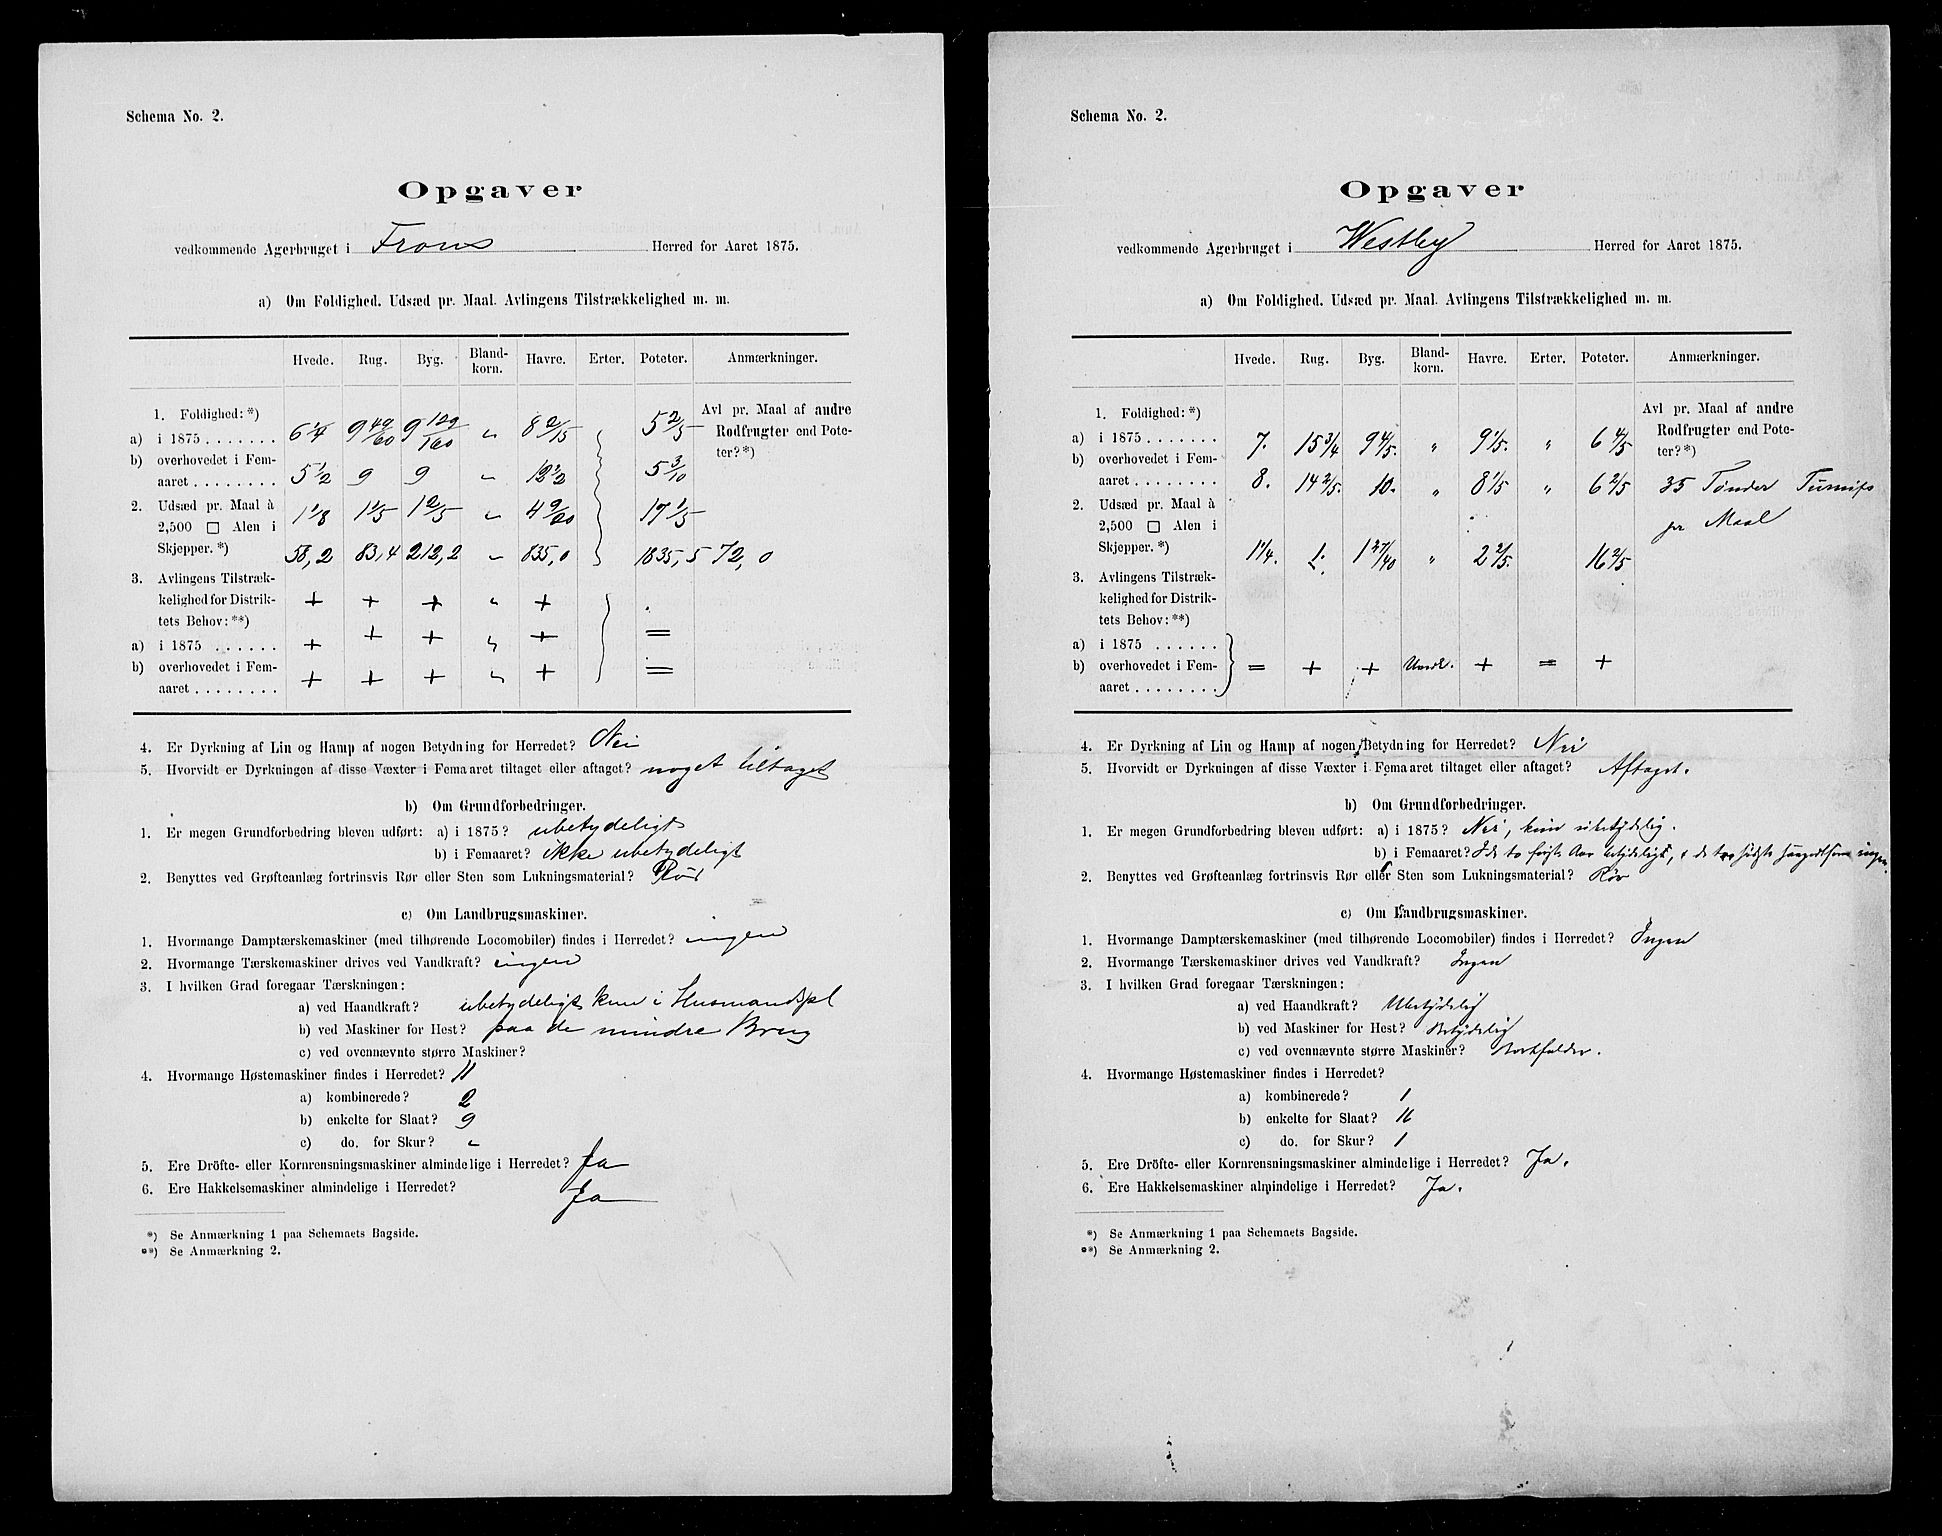 Schema No. 2.
Opgaver
vedkommende Agerbruget i Frons Herred for Aaret 1875.
a) Om Foldighed. Udsæd pr. Maal. Avlingens Tilstrækkelighed m. m.
Hvede. Rug. Byg. Bland-korn. Havre. Erter. Poteter. Anmærkninger.
1. Foldighed: *)
a) i 1875 . . . . . . . 6 1/4 9 49/60 9 129/160 " 8 2/15 5 2/5
Avl pr. Maal af andre
Rodfrugter end Pote-
ter? *)
b) overhovedet i Fem-
aaret . . . . . . . . 5 1/2 9 9 " 5 3/10
2. Udsæd pr. Maal à
2,500 □ Alen i 1 1/8 1 1/5 1 2/5 " 17 1/5
Skjepper. *) 58,2 83,4 212,2 " 835,0 1835,5 72,0
3. Avlingens Tilstræk-
kelighed for Distrik- + + + " + .
tets Behov: **)
a) i 1875 . . . . . . + + + " + =
b) overhovedet i Fem-
aaret . . . . . . . . + + + " + =
4. Er Dyrkning af Lin og Hamp af nogen Betydning for Herredet? Nei
5. Hvorvidt er Dyrkningen af disse Væxter i Femaaret tiltaget eller aftaget? noget tiltaget
b) Om Grundforbedringer.
1. Er megen Grundforbedring bleven udført: a) i 1875? ubetydeligt
b) i Femaaret? ikke ubetydeligt
2. Benyttes ved Grøfteanlæg fortrinsvis Rør eller Sten som Lukningsmaterial? Rør
c) Om Landbrugsmaskiner.
1. Hvormange Damptærskemaskiner (med tilhørende Locomobiler) findes i Herredet? ingen
2. Hvormange Tærskemaskiner drives ved Vandkraft? ingen
3. I hvilken Grad foregaar Tærskningen:
a) ved Haandkraft? ubetydeligt kun i Husmandspl
b) ved Maskiner for Hest? paa de mindre Brug
c) ved ovennævnte større Maskiner?
4. Hvormange Høstemaskiner findes i Herredet? 11
a) kombinerede? 2
b) enkelte for Slaat? 9
c) do. for Skur? "
5. Ere Dröfte- eller Kornrensningsmaskiner almindelige i Herredet? Ja
6. Ere Hakkelsemaskiner almindelige i Herredet? Ja
*) Se Anmærkning 1 paa Schemaets Bagside.
**) Se Anmærkning 2.
Schema No. 2.
Opgaver
vedkommende Agerbruget i Westby Herred for Aaret 1875.
a) Om Foldighed. Udsæd pr. Maal. Avlingens Tilstrækkelighed m. m.
Hvede. Rug. Byg. Bland-korn. Havre. Erter. Poteter. Anmærkninger.
1. Foldighed: *)
a) i 1875 . . . . . . . 7. 15 3/4 9 4/5. " 9 1/5. " 6 4/5
Avl pr. Maal af andre
Rodfrugter end Pote-
ter? *)
b) overhovedet i Fem-
aaret . . . . . . . . 8. 14 2/5. 10. " 8 1/5 " 6 2/5 35 Tønder Turnips
pr Maal
2. Udsæd pr. Maal à
2,500 □ Alen i
Skjepper. *) 1 1/4. 1. 1 27/40 " 2 2/5. 16 2/5
3. Avlingens Tilstræk-
kelighed for Distrik-
tets Behov: **)
a) i 1875 . . . . . .
b) overhovedet i Fem- = + + + = +
aaret . . . . . . . .
4. Er Dyrkning af Lin og Hamp af nogen Betydning for Herredet? Nei
5. Hvorvidt er Dyrkningen af disse Væxter i Femaaret tiltaget eller aftaget? Aftaget.
b) Om Grundforbedringer.
1. Er megen Grundforbedring bleven udført: a) i 1875? Nei, kun ubetydelig.
b) i Femaaret? I de to første Aar betydeligt, i de tre sidste saagodtsom ingen.
2. Benyttes ved Grøfteanlæg fortrinsvis Rør eller Sten som Lukningsmaterial? Rør
c) Om Landbrugsmaskiner.
1. Hvormange Damptærskemaskiner (med tilhørende Locomobiler) findes i Herredet? Ingen
2. Hvormange Tærskemaskiner drives ved Vandkraft? Ingen
3. I hvilken Grad foregaar Tærskningen:
a) ved Haandkraft? Ubetydelig
b) ved Maskiner for Hest? Betydelig
c) ved ovennævnte større Maskiner? Bortfalder.
4. Hvormange Høstemaskiner findes i Herredet?
a) kombinerede? 1
b) enkelte for Slaat? 16
c) do. for Skur? 1
5. Ere Dröfte- eller Kornrensningsmaskiner almindelige i Herredet? Ja.
6. Ere Hakkelsemaskiner almindelige i Herredet? Ja.
*) Se Anmærkning 1 paa Schemaets Bagside.
**) Se Anmærkning 2.